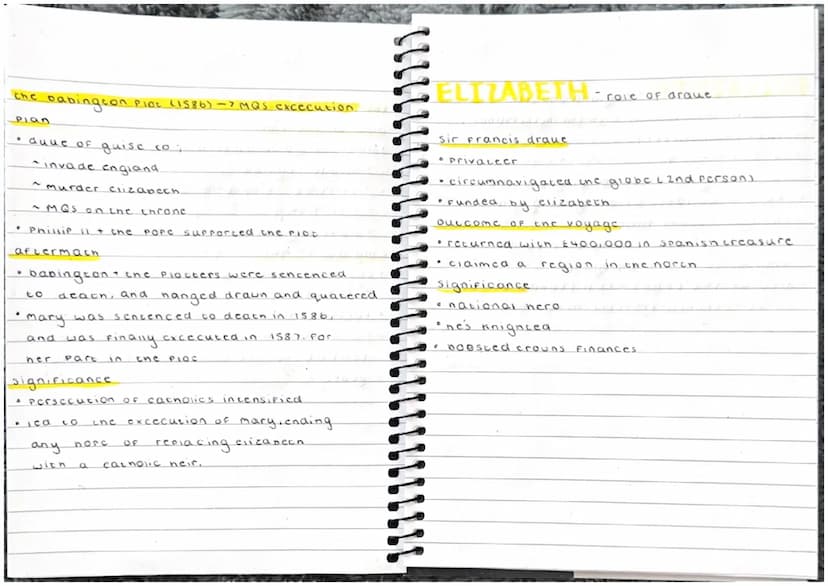 the babington plot (1586) → MQS excecution
plan
• duke of guise to :
~ invade england
~ murder elizabeth
~ MQS on the throne
• Phillip II + the pope supported the plot
aftermath
• babington + the plotters were sentenced
to death, and hanged drawn and quatered
• mary was sentenced to death in 1586,
and was finally excecuted in 1587. for
her part in the plot
significance
• persecution of catholics intensified
• led to the excecution of mary, ending
any hope of replacing elizabeth
with a catholic heir.
ELIZABETH - role of drake
sir francis drake
• privateer
• circumnavigated the globe (2nd person)
• funded by elizabeth
outcome of the voyage
• returned with £400,000 in spanish treasure
• claimed a region in the north
significance
• national hero
• he's knighted
• boosted crowns finances